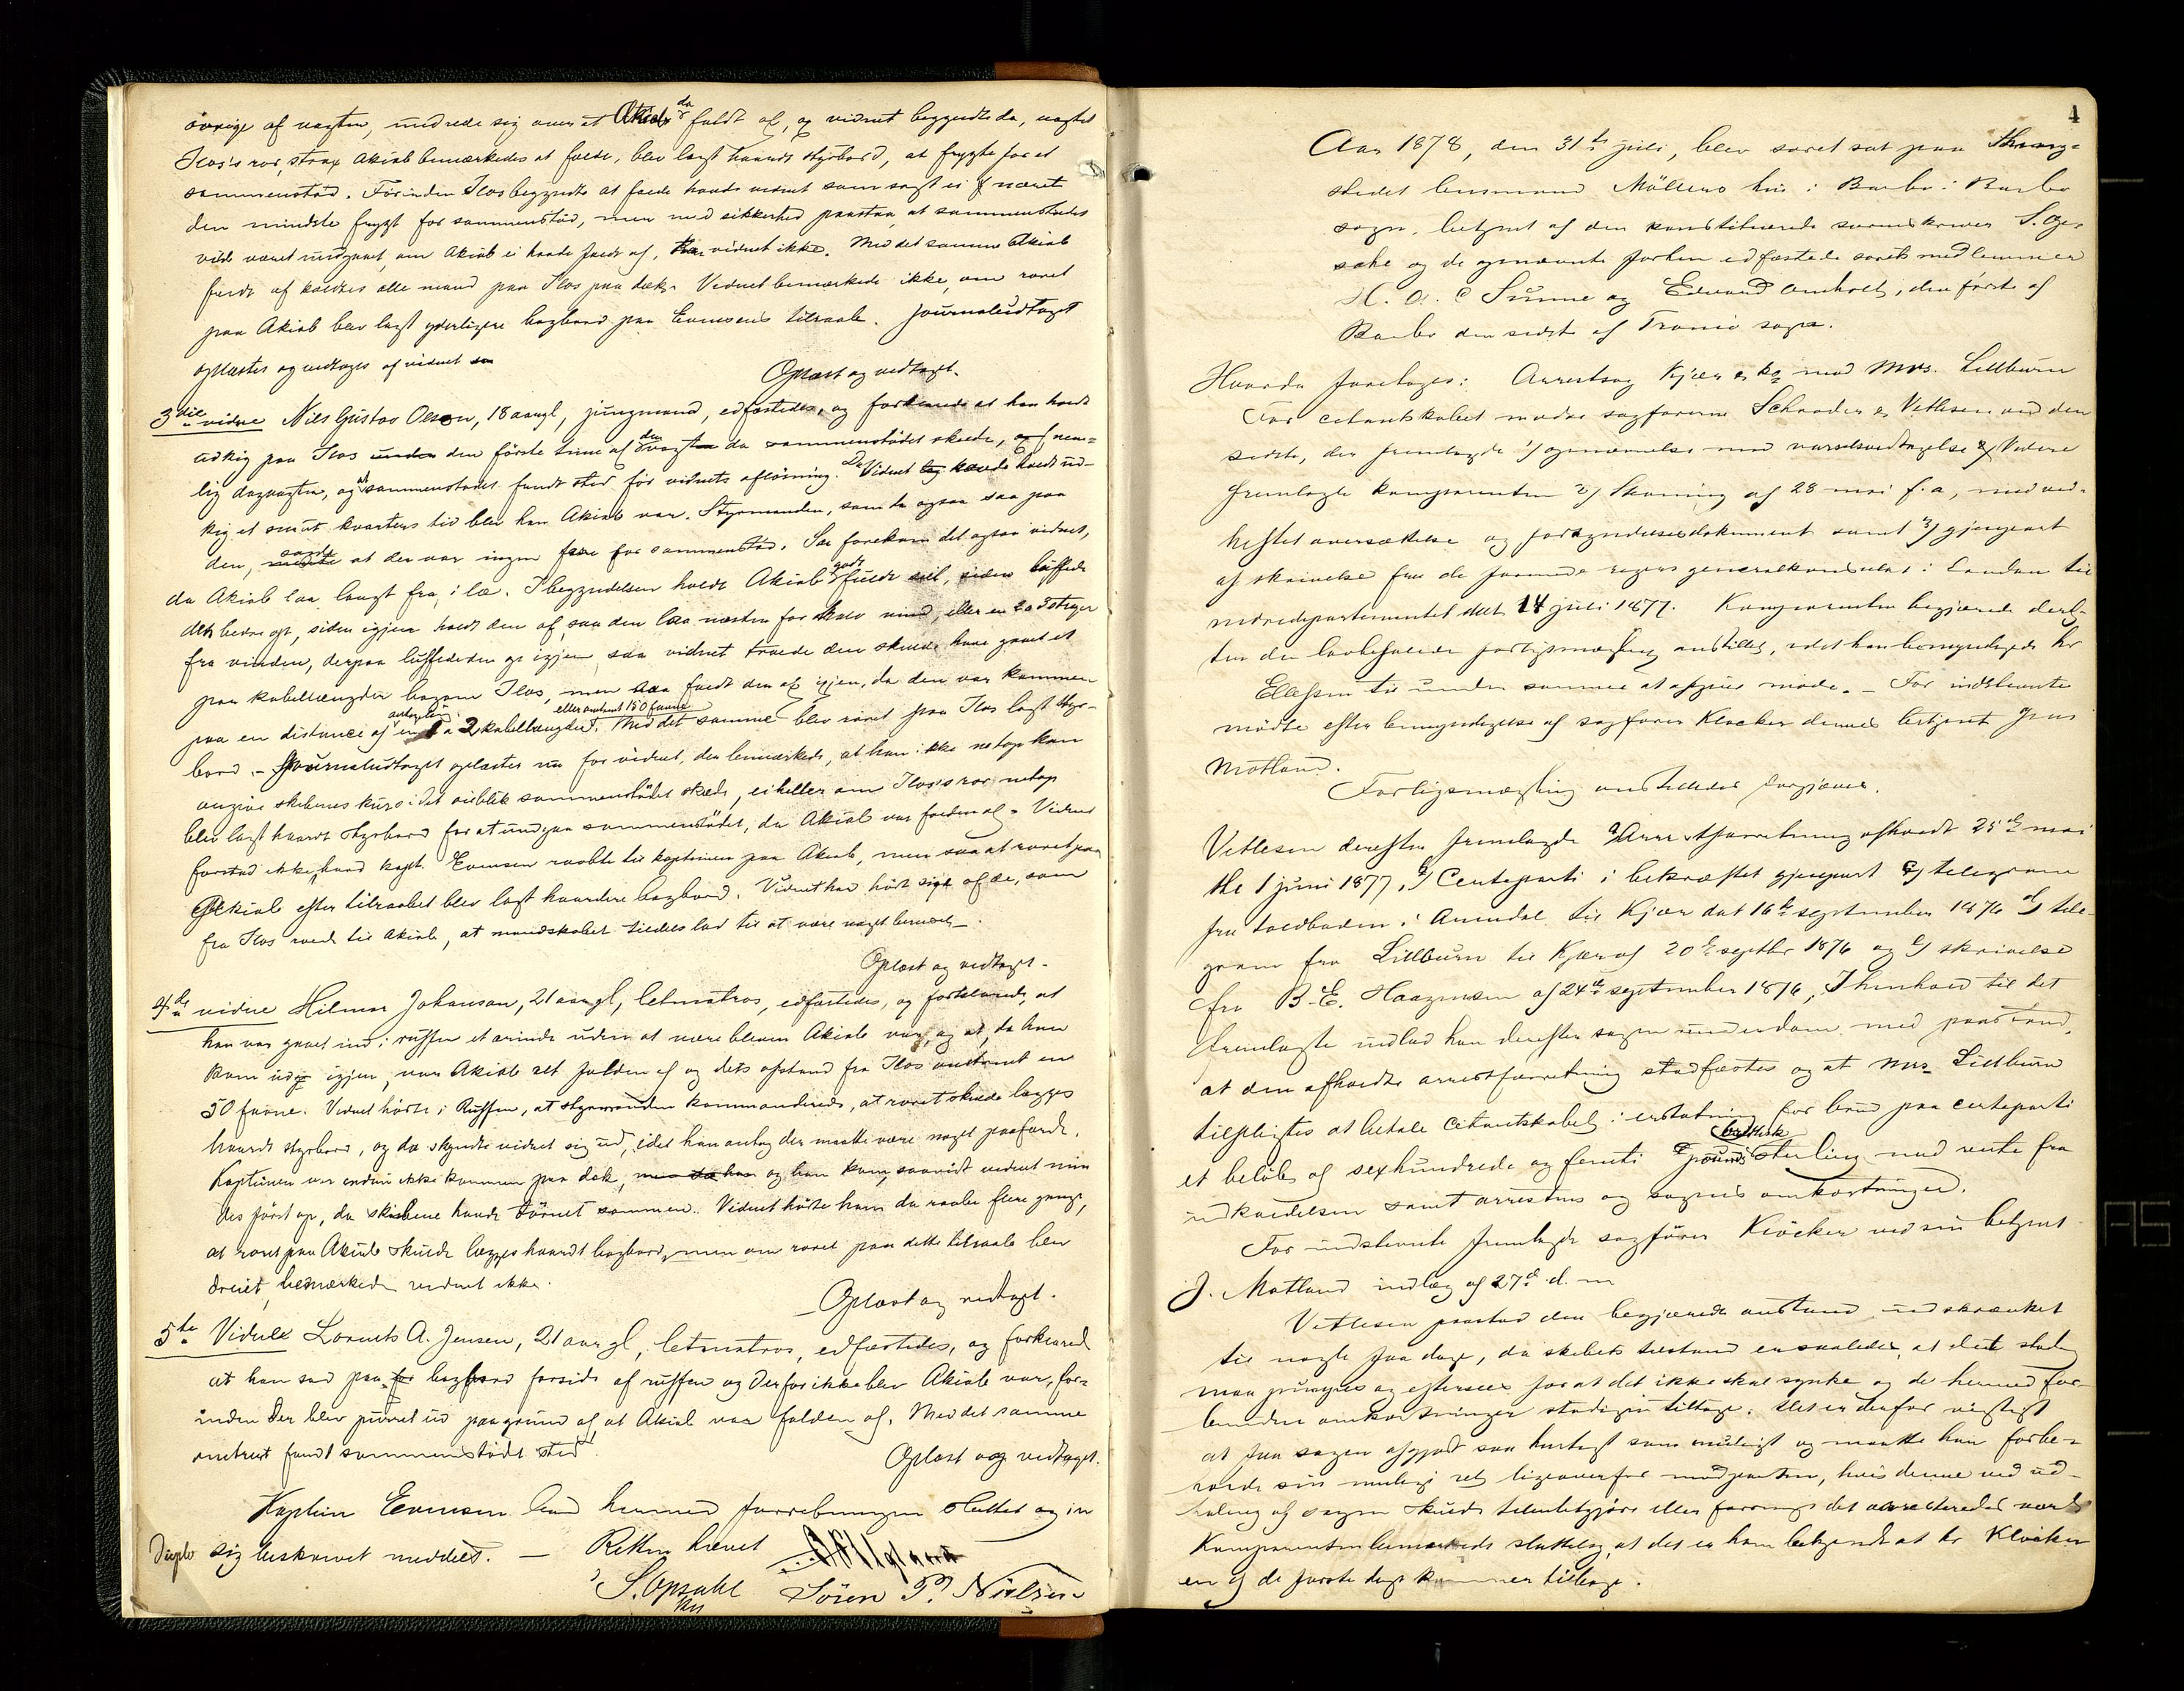 övrige af vagten, undrede sig over at Akiab da faldt af, og vidnet begyndte da, uagtet
Ilos's ror, strax Akiab bemærkedes at falde, blev lagt haardt styrbord, at frygte for et
sammenstöd. Förinden Ilos begyndte at falde havde vidnet som sagt ei næret
den mindste frygt for sammenstöd, men med sikkerhed paastaa, at sammenstödet
vilde været undgaaet, om Akiab ei havde faldt af, tør vidnet ikke. Med det samme Akiab
faldt af kaldtes alle mand paa Ilos paa dæk. Vidnet bemærkede ikke, om roret
paa Akiab blev lagt yderligere bagbord paa Evensens tilraab. Journaludtoget
oplæstes og vedtoges af vidnet
Oplæst og vedtaget.
3die vidne Nils Gustav Olsson, 18 aar gl, jungmand, edfæstedes, og forklarede at han havde
udkig paa Ilos den förste time af den vagt da sammenstödet skede, nem=
lig dagvagten, og at sammenstödet fandt sted för vidnets aflösning. Da Vidnet havde havt ud-
kig et snaut kvarters tid blev han Akiab var. Styrmanden, som da ogsaa saa paa
den, sagde at der var ingen fare for sammenstöd. Saa forekom det ogsaa vidnet,
da Akiab laa langt fra, i læ. I begyndelsen holdt Akiab godt fulde seil, siden luffede
den bedre op, siden igjen holdt den af, saa den laa næsten for halv vind, eller en 2 a 3 streger
fra vinden, derpaa luffede den op igjen, saa vidnet troede den skulde have gaaet et
par kabellængder bagom Ilos, men saa faldt den af igjen, da den var kommen
paa en distance af antagelig en 1 a 2 kabellængder eller omtrent 150 favne. Med det samme blev roret paa Ilos lagt styr-
bord. – Journaludtoget oplæstes nu for vidnet, der bemærkede, at han ikke netop kan
angive skibenes kurs i det öieblik sammenstödet skede, ei heller om Ilos's ror netop
blev lagt haardt styrbord for at undgaa sammenstödet, da Akiab var falden af. Vidnet
forstod ikke, hvad kapt. Evensen raabte til kaptainen paa Akiab, men saa at roret paa
Akiab efter tilraabet blev lagt haardere bagbord. Vidnet har hört sige af de, som
fra Ilos roede til Akiab, at mandskabet tildels lod til at være noget beruset.
Oplæst og vedtaget.
4de vidne Hilmar Johanson, 21 aar gl, letmatros, edfæstedes, og forklarede, at
han var gaaet ind i ruffen et ærinde uden at være bleven Akiab var, og at, da han
kom ud igjen, var Akiab alt falden af og dets afstand fra Ilos omtrent en
50 favne. Vidnet hörte i Ruffen, at styrmanden kommanderede, at roret skulde lægges
haardt styrbord, og da skyndte vidnet sig ud, idet han antog der maatte være noget paafærde.
Kaptainen var endnu ikke kommen paa dæk, og han kom, saavidt vidnet min
des först op, da skibene havde törnet sammen. Vidnet hörte ham da raabe flere gange,
at roret paa Akiab skulde lægges haardt bagbord, men om roret paa dette tilraab blev
dreiet, bemærkede vidnet ikke.
Oplæst og vedtaget.
5te Vidne Lorents A. Jensen, 21 aar gl, letmatros, edfæstedes, og forklared
at han sad paa bagbord forside af ruffen og derfor ikke blev Akiab var, for-
inden der blev purret ud paa grund af, at Akiab var falden af. Med det samme
omtrent fandt sammenstödet sted.
Oplæst og vedtaget.
Kaptein Evensen lod hermed forretningen sluttet og in
sig beskrevet meddelt. — Retten hævet
S. Opsahl
Sören P. Nielsen
4
Aar 1878, den 31te juli, blev söret sat paa thing-
stedet lensmand Möllers hus i Barbo i Barbo
sogn, betjent af den konstituerede sorenskriver S. Op-
sahl og de opnævnte forhen edfæstede sörets medlemmer
H. A. C Sunne og Edvard Amholt, den förste af
Barbo den sidste af Tromö sogn.
Hvorda foretoges: Arrestsag Kjær & ko mod Mrs. Lillburn
For citantskabet mødte sagförerne Schrøder & Vetlesen ved den
sidste, der fremlagde 1) opnævnelse med varselsvedtagelse & Videre
fremlagte komparenten 2) Stævning af 28 mai f.a, med ved-
heftet oversættelse og forkyndelsesdokument samt 3) gjenpart
af skrivelse fra de forenede rigers generalkonsulat i London til
indredepartementet dat 14 juli 1877. Komparenten begjærede deref-
ter den lovbefalede forligsmægling anstillet, idet han bemyndigede hr
Ellefsen til under samme at afgive möde. – For indstevnte
mödte efter bemyndigelse af sagförer Klocker dennes betjent Jens
Motland.
Forligsmægling anstilledes forgjæves.
Vetlesen derefter fremlagde Arrestforretning afholdt 25de mai
til 1 juni 1877, Certeparti i bekræftet gjenpart telegram
fra toldboden i Arendal til Kjær dat 16de september 1876 tele-
gram fra Lillburn til Kjær af 20de septbr 1876 og skrivelse
fra B. E. Haagensen af 24de september 1876, I henhold til det
fremlagte indlod han derefter sagen under dom med paastand,
at den afholdte arrestforretning stadfæstes og at Mrs. Lillburn
tilpligtes at betale citantskabet i erstatning for brud paa certeparti
et belöb af sexhundrede og femti brittisk pounds sterling med rente fra
indkaldelsen samt arrestens og sagens omkostninger.
For indstevnte fremlagde sagförer Klöcker ved sin betjent
J. Motland indlæg af 27de d. m
Vetlesen paastod den begjærede anstand indskrænket
til nogle faa dage, da skibets tilstand er saaledes, at det stadig
maa pumpes og eftersees for at det ikke skal synke og de hermed for-
bundne omkostninger stadigen tiltage. Det er derfor vigtigt
at faa sagen afgjort saa hurtigt som muligt og maatte han forbe-
holde sin mulige ret ligeoverfor modparten, hvis denne ved ud-
haling af sagen skulde tilintetgjøre eller forringe det arresteredes værd
Komparenten bemærkede sluttelig, at det er ham bekjendt at hr Klöcker
en af de første dage kommer tilbage.